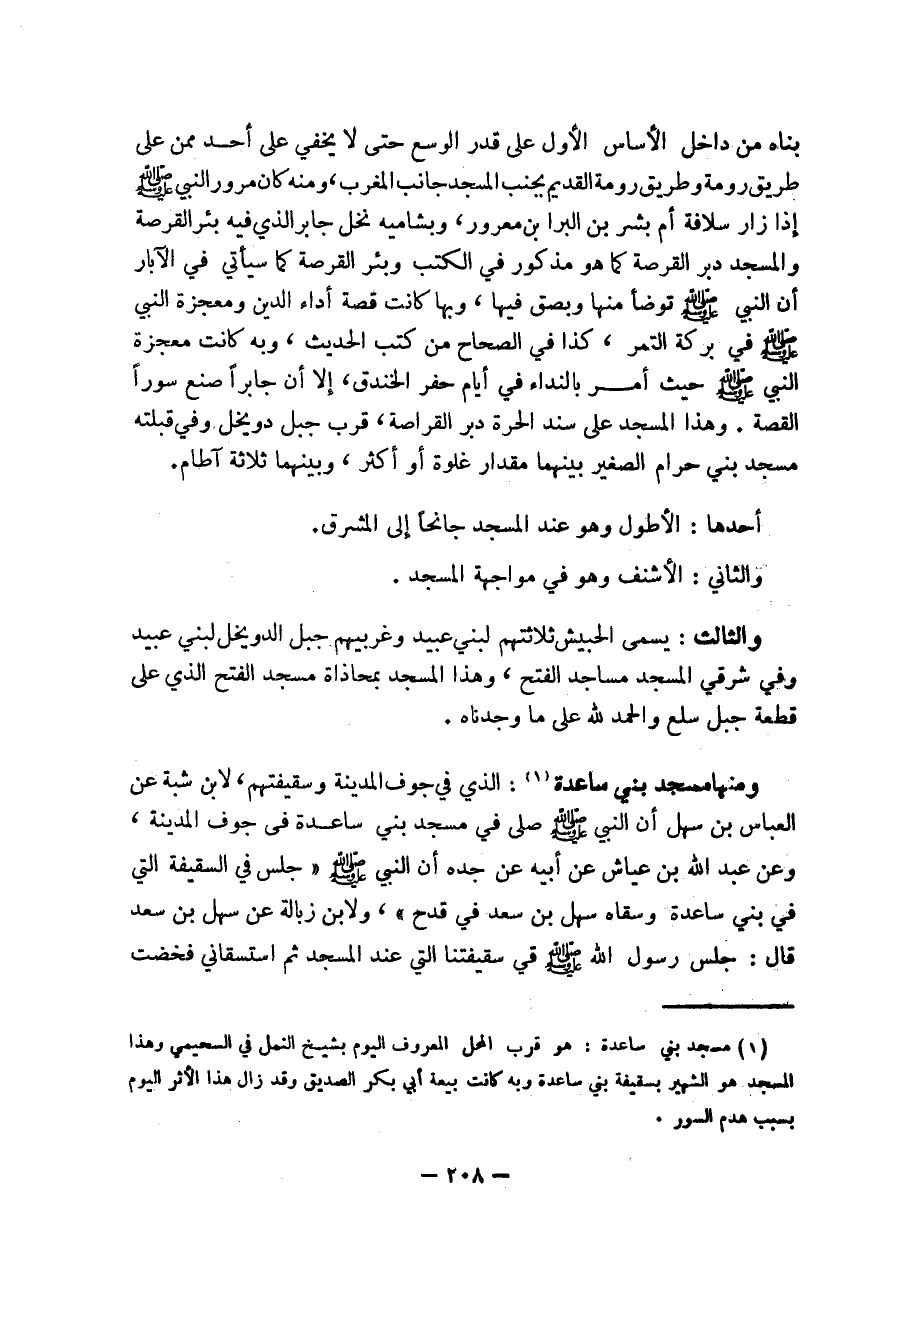 بناه من داخل الأساس الأول على قدر الوسع حتى لا يخفي على أحد ممن على
طريق رومة وطريق رومة القديم بجنب المسجد جانب المغرب، ومنه كان مرور النبي ﷺ
إذا زار سلافة أم بشر بن البرا بن معرور، وبشاميه نخل جابر الذي فيه بئر القرصة
والمسجد دبر القرصة كما هو مذكور في الكتب وبئر القرصة كما سيأتي في الآبار
أن النبي ﷺ توضأ منها وبصق فيها ، وبها كانت قصة أداء الدين ومعجزة النبي
ﷺ في بركة التمر ، كذا في الصحاح من كتب الحديث ، وبه كانت معجزة
النبي ﷺ حيث أمر بالنداء في أيام حفر الخندق، إلا أن جابراً صنع سوراً
القصة . وهذا المسجد على سند الحرة دبر القراصة، قرب جبل دويخل وفي قبلته
مسجد بني حرام الصغير بينهما مقدار غلوة أو أكثر ، وبينهما ثلاثة آطام.
أحدها : الأطول وهو عند المسجد جانحاً إلى المشرق.
والثاني : الأشنف وهو في مواجهة المسجد .
والثالث : يسمى الحبيش ثلاثتهم لبني عبيد وغربيهم جبل الدويخل لبني عبيد
وفي شرقي المسجد مساجد الفتح ، وهذا المسجد بمحاذاة مسجد الفتح الذي على
قطعة جبل سلع والحمد لله على ما وجدناه .
ومنها مسجد بني ساعدة (١) : الذي في جوف المدينة وسقيفتهم، لابن شبة عن
العباس بن سهل أن النبي ﷺ صلى في مسجد بني ساعدة فى جوف المدينة ،
وعن عبد الله بن عياش عن أبيه عن جده أن النبي ﷺ « جلس في السقيفة التي
في بني ساعدة وسقاه سهل بن سعد في قدح » ، ولابن زبالة عن سهل بن سعد
قال : جلس رسول الله ﷺ قي سقيفتنا التي عند المسجد ثم استسقاني فخضت
(١) مسجد بني ساعدة : هو قرب المحل المعروف اليوم بشيخ النمل في السحيمي وهذا
المسجد هو الشهير بسقيفة بني ساعدة وبه كانت بيعة أبي بكر الصديق وقد زال هذا الأثر اليوم
بسبب هدم السور .
— ٢٠٨ —